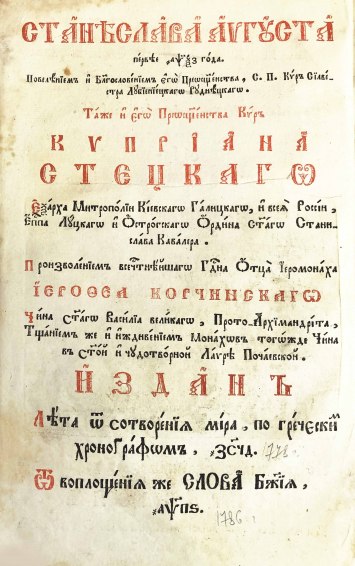 СТАНЇСЛАВА АѴГУСТА
первѣе ҂АѰ҃ѮЗ года.
Повелѣнїемъ и Благословенїемъ егѡ Преѡсщ҃енства, С. П. Кѵръ Сѵлвестра Лѹбѣнѣцкагѡ Рѹднѣцкагѡ.
Таже и егѡ Преѡсщ҃енства Кѵръ
КѴПРІАНА
СТЕЦКАГѠ
Еѯарха Митрополїи Кїевскагѡ Галицкагѡ, и всеѧ Россїи,
Еп҃па Лѹцкагѡ и Острогскагѡ Ордина Ст҃агѡ Станислава Кавалера.
Произволенїемъ всечтⷭ҇нѣйшагѡ Гдⷭ҇на Отца Іеромонаха
ІЕРОѲЕА КОРЧИНСКАГѠ
Чина Ст҃агѡ Василїа великагѡ, Прото-Архїмандрїта,
Тщанїемъ же и иждивенїемъ Монахѡвъ тогѡжде Чина
въ Ст҃ой и чѹдотворной Лаѵрѣ Почаевской.
ИЗДАНЪ
Лѣта ѿ сотворенїѧ мїра, по греческимъ
хронографѡмъ, ҂ЗСЧ҃Д. 1786
Ѿ воплощенїѧ же СЛОВА Бж҃їѧ,
҂АѰП҃Ѕ. 1786.